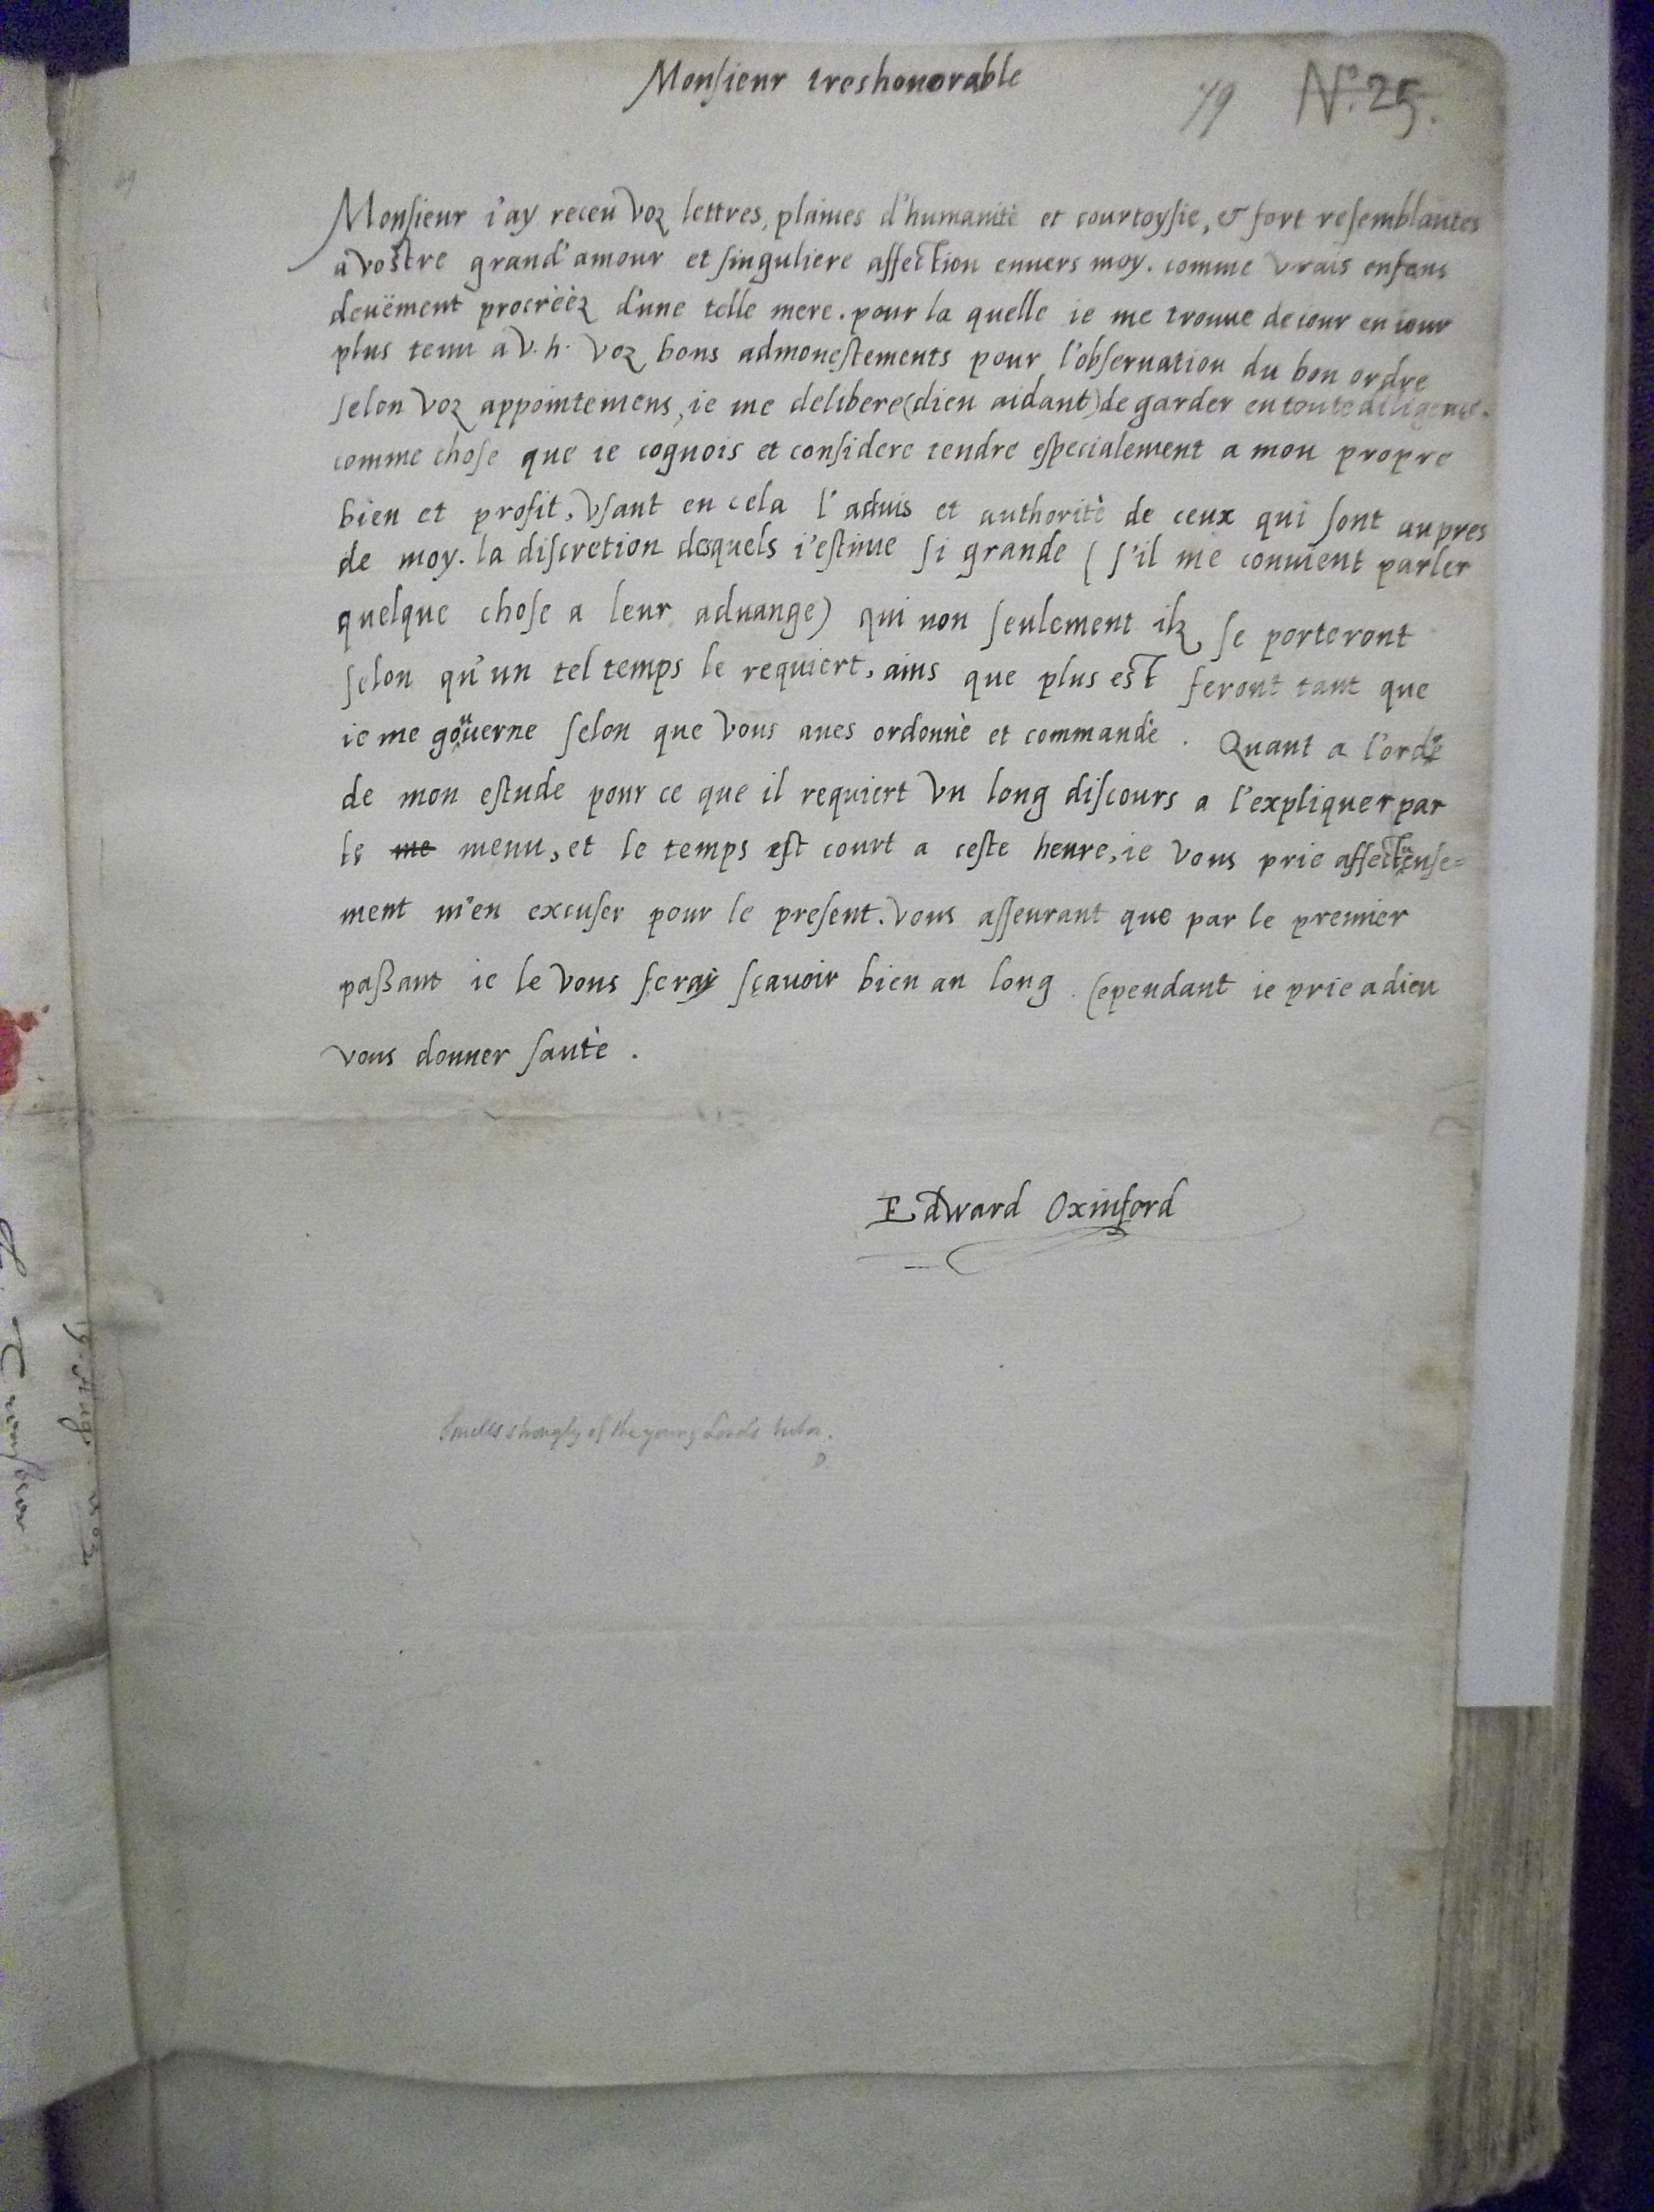 Monsieur treshonorable
79 No. 25.
Monsieur i'ay receu voz lettres, plaines d'humanitè et courtoysie, & fort resemblantes
a vostre grand' amour et singuliere affection enuers moy. comme vrais enfans
deuëment procrèèz d'une telle mere. pour la quelle ie me trouue de iour en iour
plus tenu a v. h. voz bons admonestements pour l'obseruation du bon ordre
selon voz appointemens, ie me delibere (dieu aidant) de garder en toute diligence.
comme chose que ie cognois et considere tendre especialement a mon propre
bien et profit, vsant en cela l'aduis et authoritè de ceux qui sont aupres
de moy. la discretion desquels i'estime si grande (s'il me conuient parler
quelque chose a leur aduange) qui non seulement ilz se porteront
selon qu'un tel temps le requiert, ains que plus est feront tant que
ie me gouuerne selon que vous aues ordonnè et commandè. Quant a l'ordre
de mon estude pour ce que il requiert vn long discours a l'expliquer par
le me menu, et le temps est court a ceste heure, ie vous prie affectueuse=
ment m'en excuser pour le present. vous asseurant que par le premier
passant ie le vous feray sçauoir bien au long. Cependant ie prie a dieu
vous donner santè.
Edward Oxinford
Smells strongly of the young Lord's tutor.
D
19. Aug.